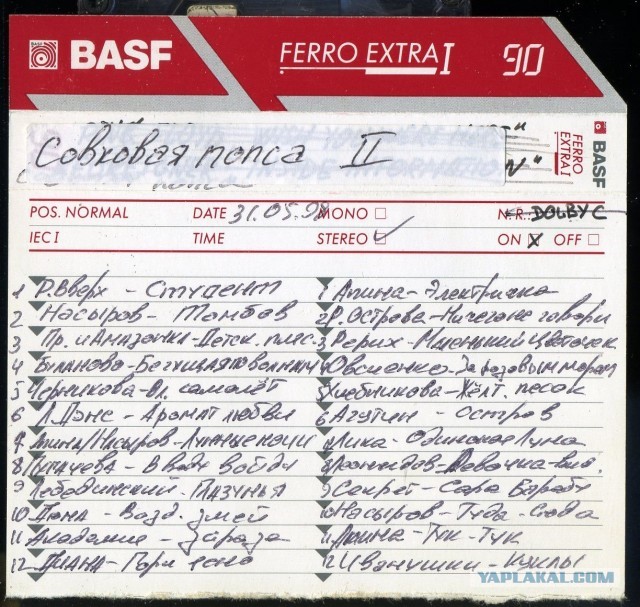 BASF FERRO EXTRA I 90
Совковая попса II
N"
FERRO EXTRA I BASF
POS. NORMAL DATE 31.05.98 MONO N.R.: DOLBY C
IEC I TIME STEREO ON OFF
1 Р.Вверх - Студент
2 Насыров - Тамбов
3 Пр. и Амазонка - Детск.
4 Буланова - Бегущая по волнам
5 Черникова - Вл. самолёт
6 Л.Дэнс - Аромат любви
7 Апина/Насыров - Лунные ночи
8 В воду войду
9 Лебединский - Глазунья
10 Дюна - Возд. змей
11 Академия - зараза
12 Диана - Гори ясно
1 Апина - Электричка
2 Р. Острова - Ничего не говори
3 Рерих - Маленький цветочек
4 Овсиенко - За розовым морем
5 Хлебникова - Жёлт. песок
6 Агутин - Остров
7 Лика - Одинокая Луна
8 Леонидов - Девочка-вид.
9 Секрет - Сара Барабу
10 Насыров - Туда-Сюда
11 Апина - Тук-Тук
12 Иванушки - Куклы
YAPLAKAL.COM